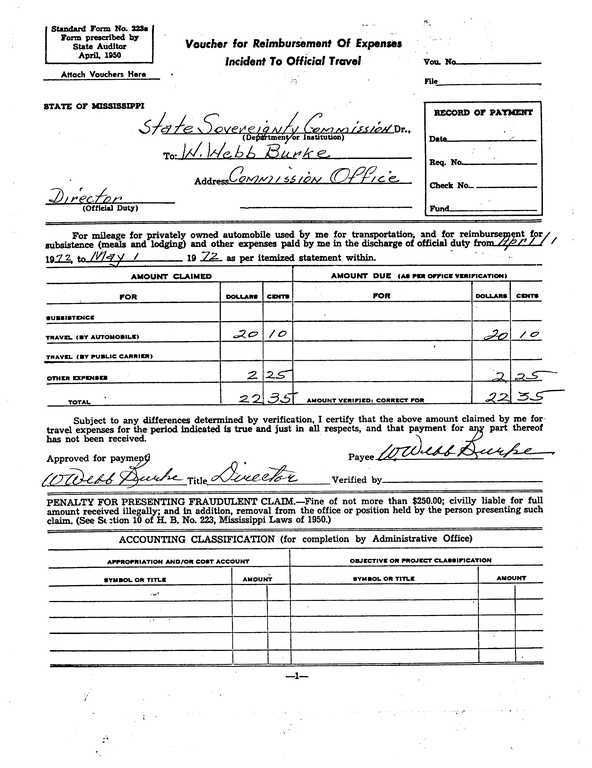 Standard Form No. 223a
Form prescribed by
State Auditor
April, 1950
Attach Vouchers Here
Voucher for Reimbursement Of Expenses
Incident To Official Travel
Vou. No.
File
STATE OF MISSISSIPPI
State Sovereignty Commission Dr.,
(Department or Institution)
To: W. Webb Burke
Address Commission Office
Director
(Official Duty)
RECORD OF PAYMENT
Date
Req. No.
Check No.
Fund
For mileage for privately owned automobile used by me for transportation, and for reimbursement for
subsistence (meals and lodging) and other expenses paid by me in the discharge of official duty from April 1,
1972, to May 1 1972 as per itemized statement within.
AMOUNT CLAIMED AMOUNT DUE (AS PER OFFICE VERIFICATION)
FOR DOLLARS CENTS FOR DOLLARS CENTS
SUBSISTENCE
TRAVEL (BY AUTOMOBILE) 20 10 20 10
TRAVEL (BY PUBLIC CARRIER)
OTHER EXPENSES 2 25 2 25
TOTAL 22 35 AMOUNT VERIFIED: CORRECT FOR 22 35
Subject to any differences determined by verification, I certify that the above amount claimed by me for
travel expenses for the period indicated is true and just in all respects, and that payment for any part thereof
has not been received.
Approved for payment: Payee W Webb Burke
W Webb Burke Title Director Verified by
PENALTY FOR PRESENTING FRAUDULENT CLAIM.—Fine of not more than $250.00; civilly liable for full
amount received illegally; and in addition, removal from the office or position held by the person presenting such
claim. (See Section 10 of H. B. No. 223, Mississippi Laws of 1950.)
ACCOUNTING CLASSIFICATION (for completion by Administrative Office)
APPROPRIATION AND/OR COST ACCOUNT OBJECTIVE OR PROJECT CLASSIFICATION
SYMBOL OR TITLE AMOUNT SYMBOL OR TITLE AMOUNT
—1—